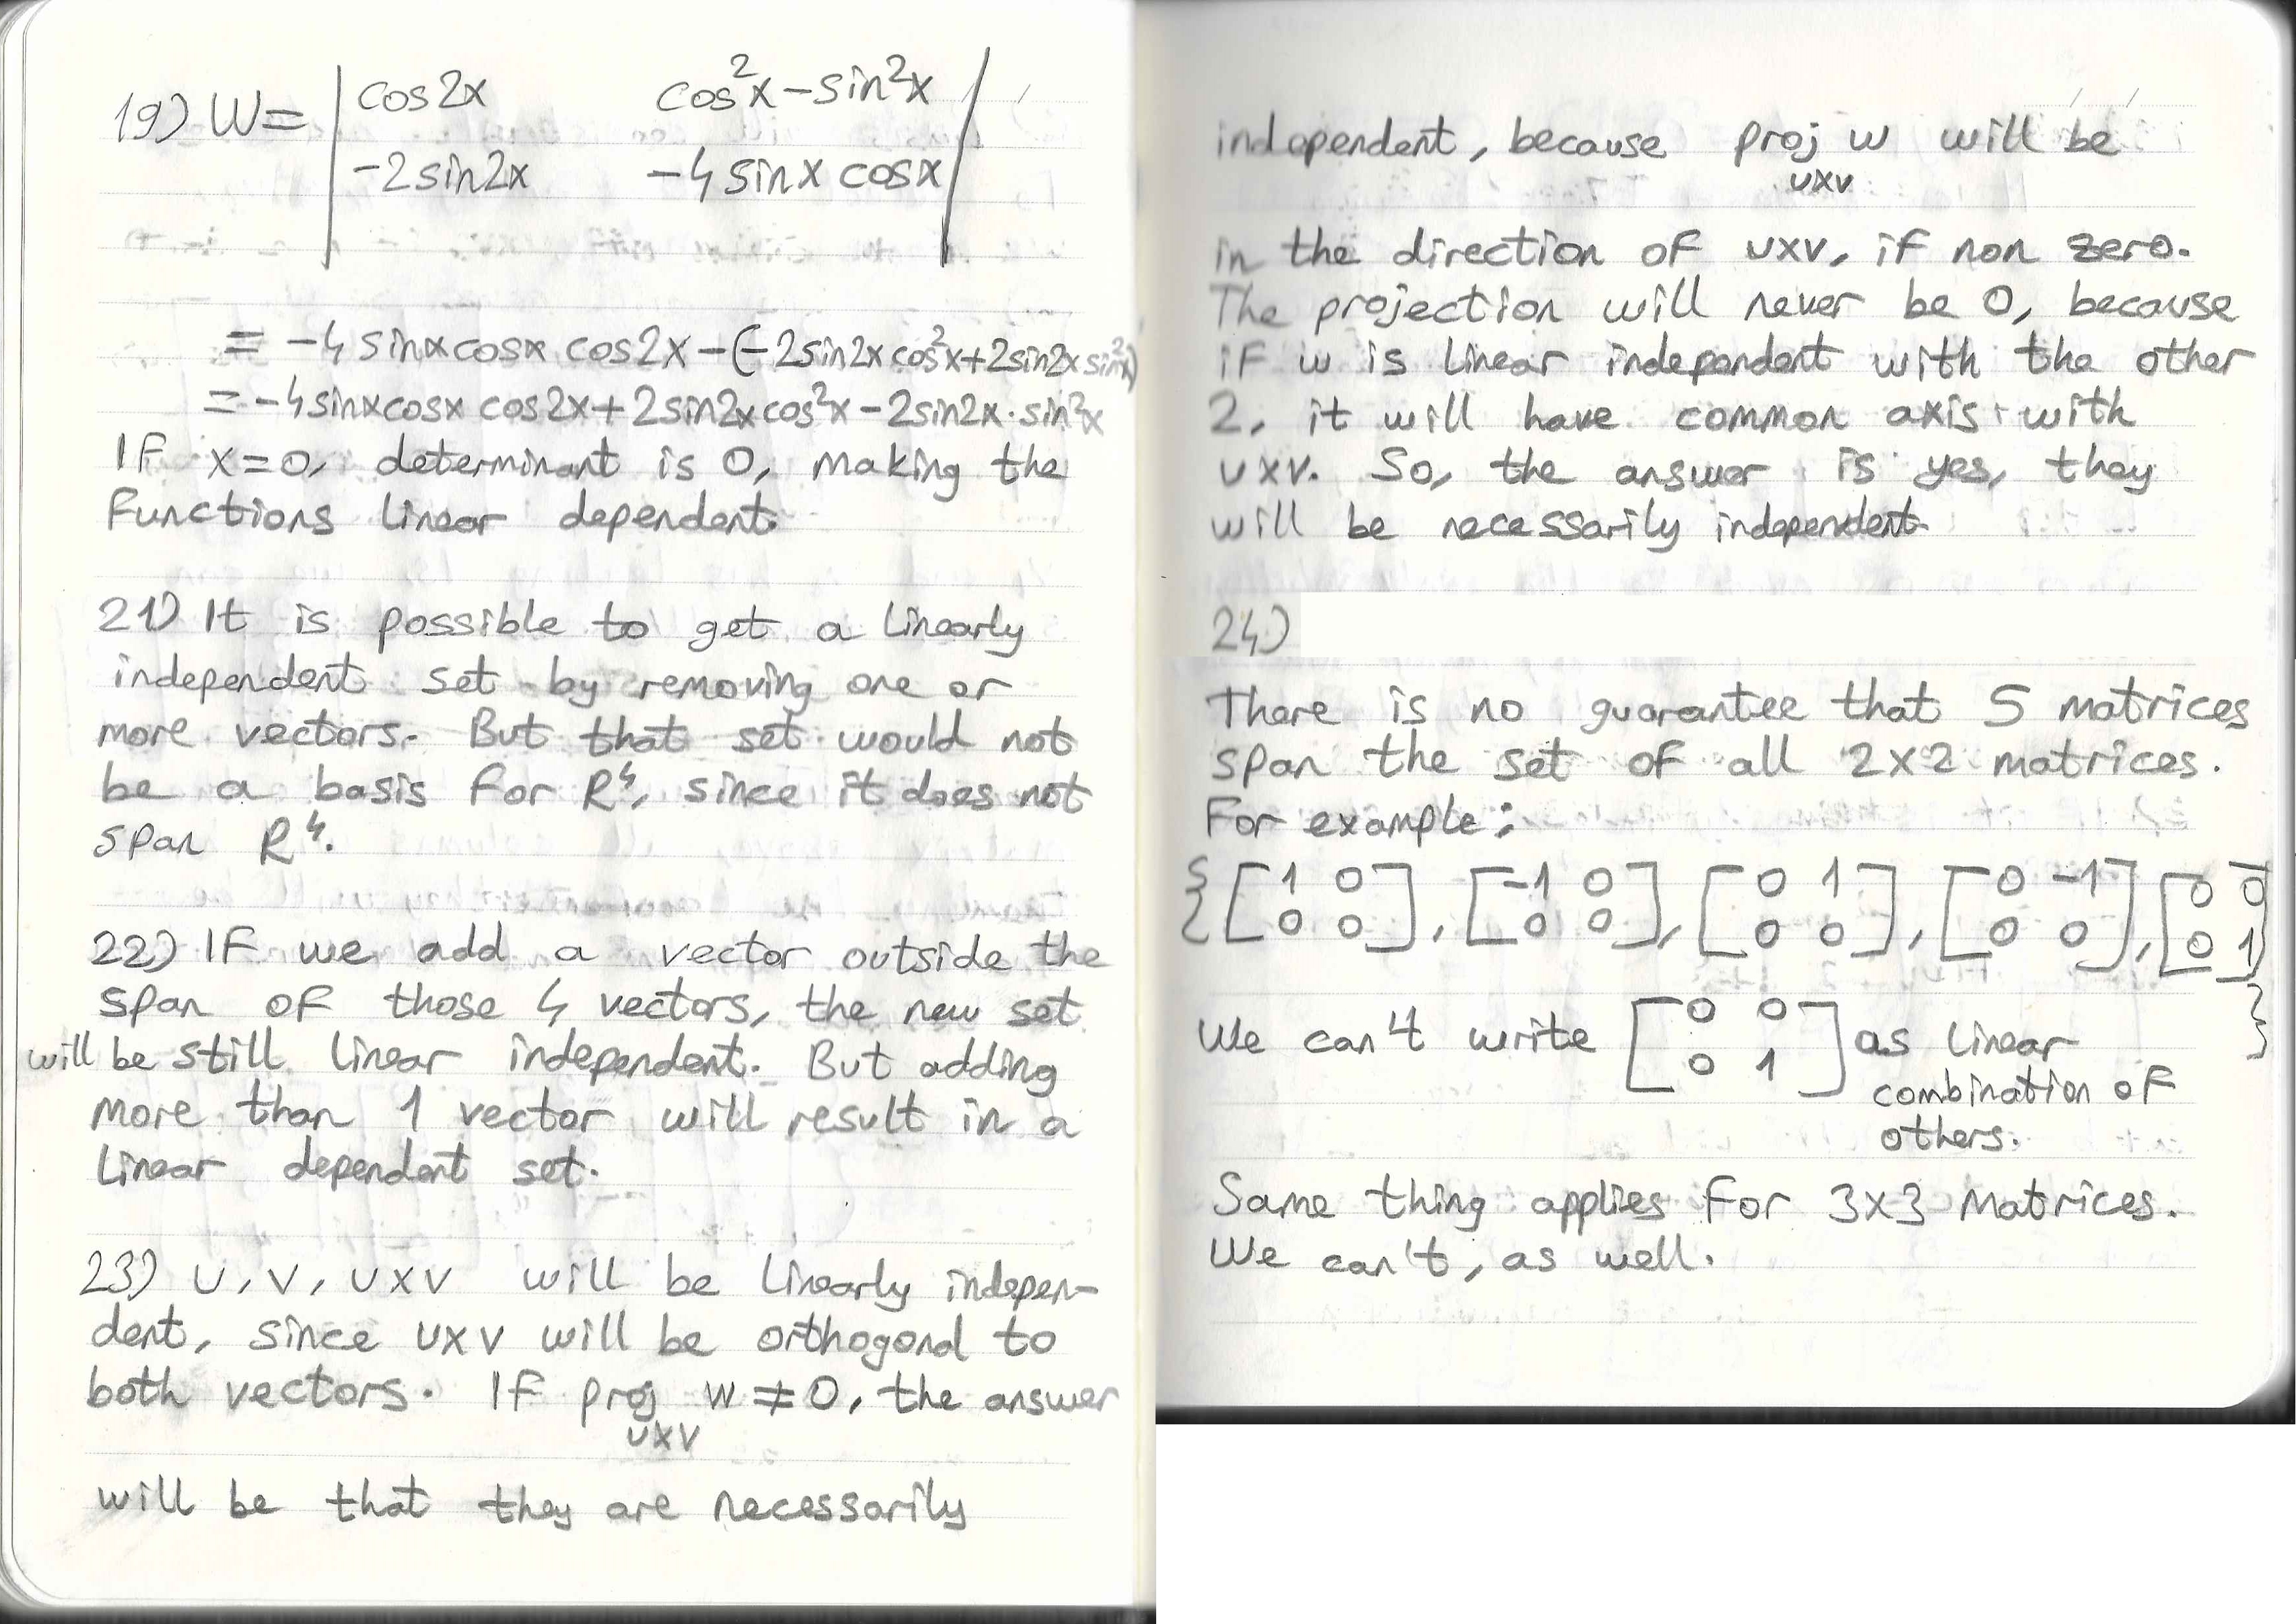 19) W= | cos2x cos²x-sin²x |
| -2sin2x -4sinx cosx |
= -4sinxcosx cos2x-(-2sin2x cos²x+2sin2x sin²x)
= -4sinxcosx cos2x+2sin2x cos²x-2sin2x·sin²x
If x=0, determinant is 0, making the
functions linear dependent.
21) It is possible to get a linearly
independent set by removing one or
more vectors. But that set would not
be a basis for R⁴, since it does not
span R⁴.
22) If we add a vector outside the
span of those 4 vectors, the new set
will be still linear independent. But adding
more than 1 vector will result in a
linear dependent set.
23) u, v, uxv will be linearly indepen-
dent, since uxv will be orthogonal to
both vectors. If proj w ≠ 0, the answer
uxv
will be that they are necessarily
independent, because proj w will be
uxv
in the direction of uxv, if non zero.
The projection will never be 0, because
if w is linear independent with the other
2, it will have common axis with
uxv. So, the answer is yes, they
will be necessarily independent.
24)
There is no guarantee that 5 matrices
span the set of all 2x2 matrices.
For example:
{ [1 0], [-1 0], [0 1], [0 -1], [0 0]
[0 0] [0 0] [0 0] [0 0] [0 1] }
We can't write [0 0] as linear
[0 1] combination of
others.
Same thing applies for 3x3 Matrices.
We can't, as well.